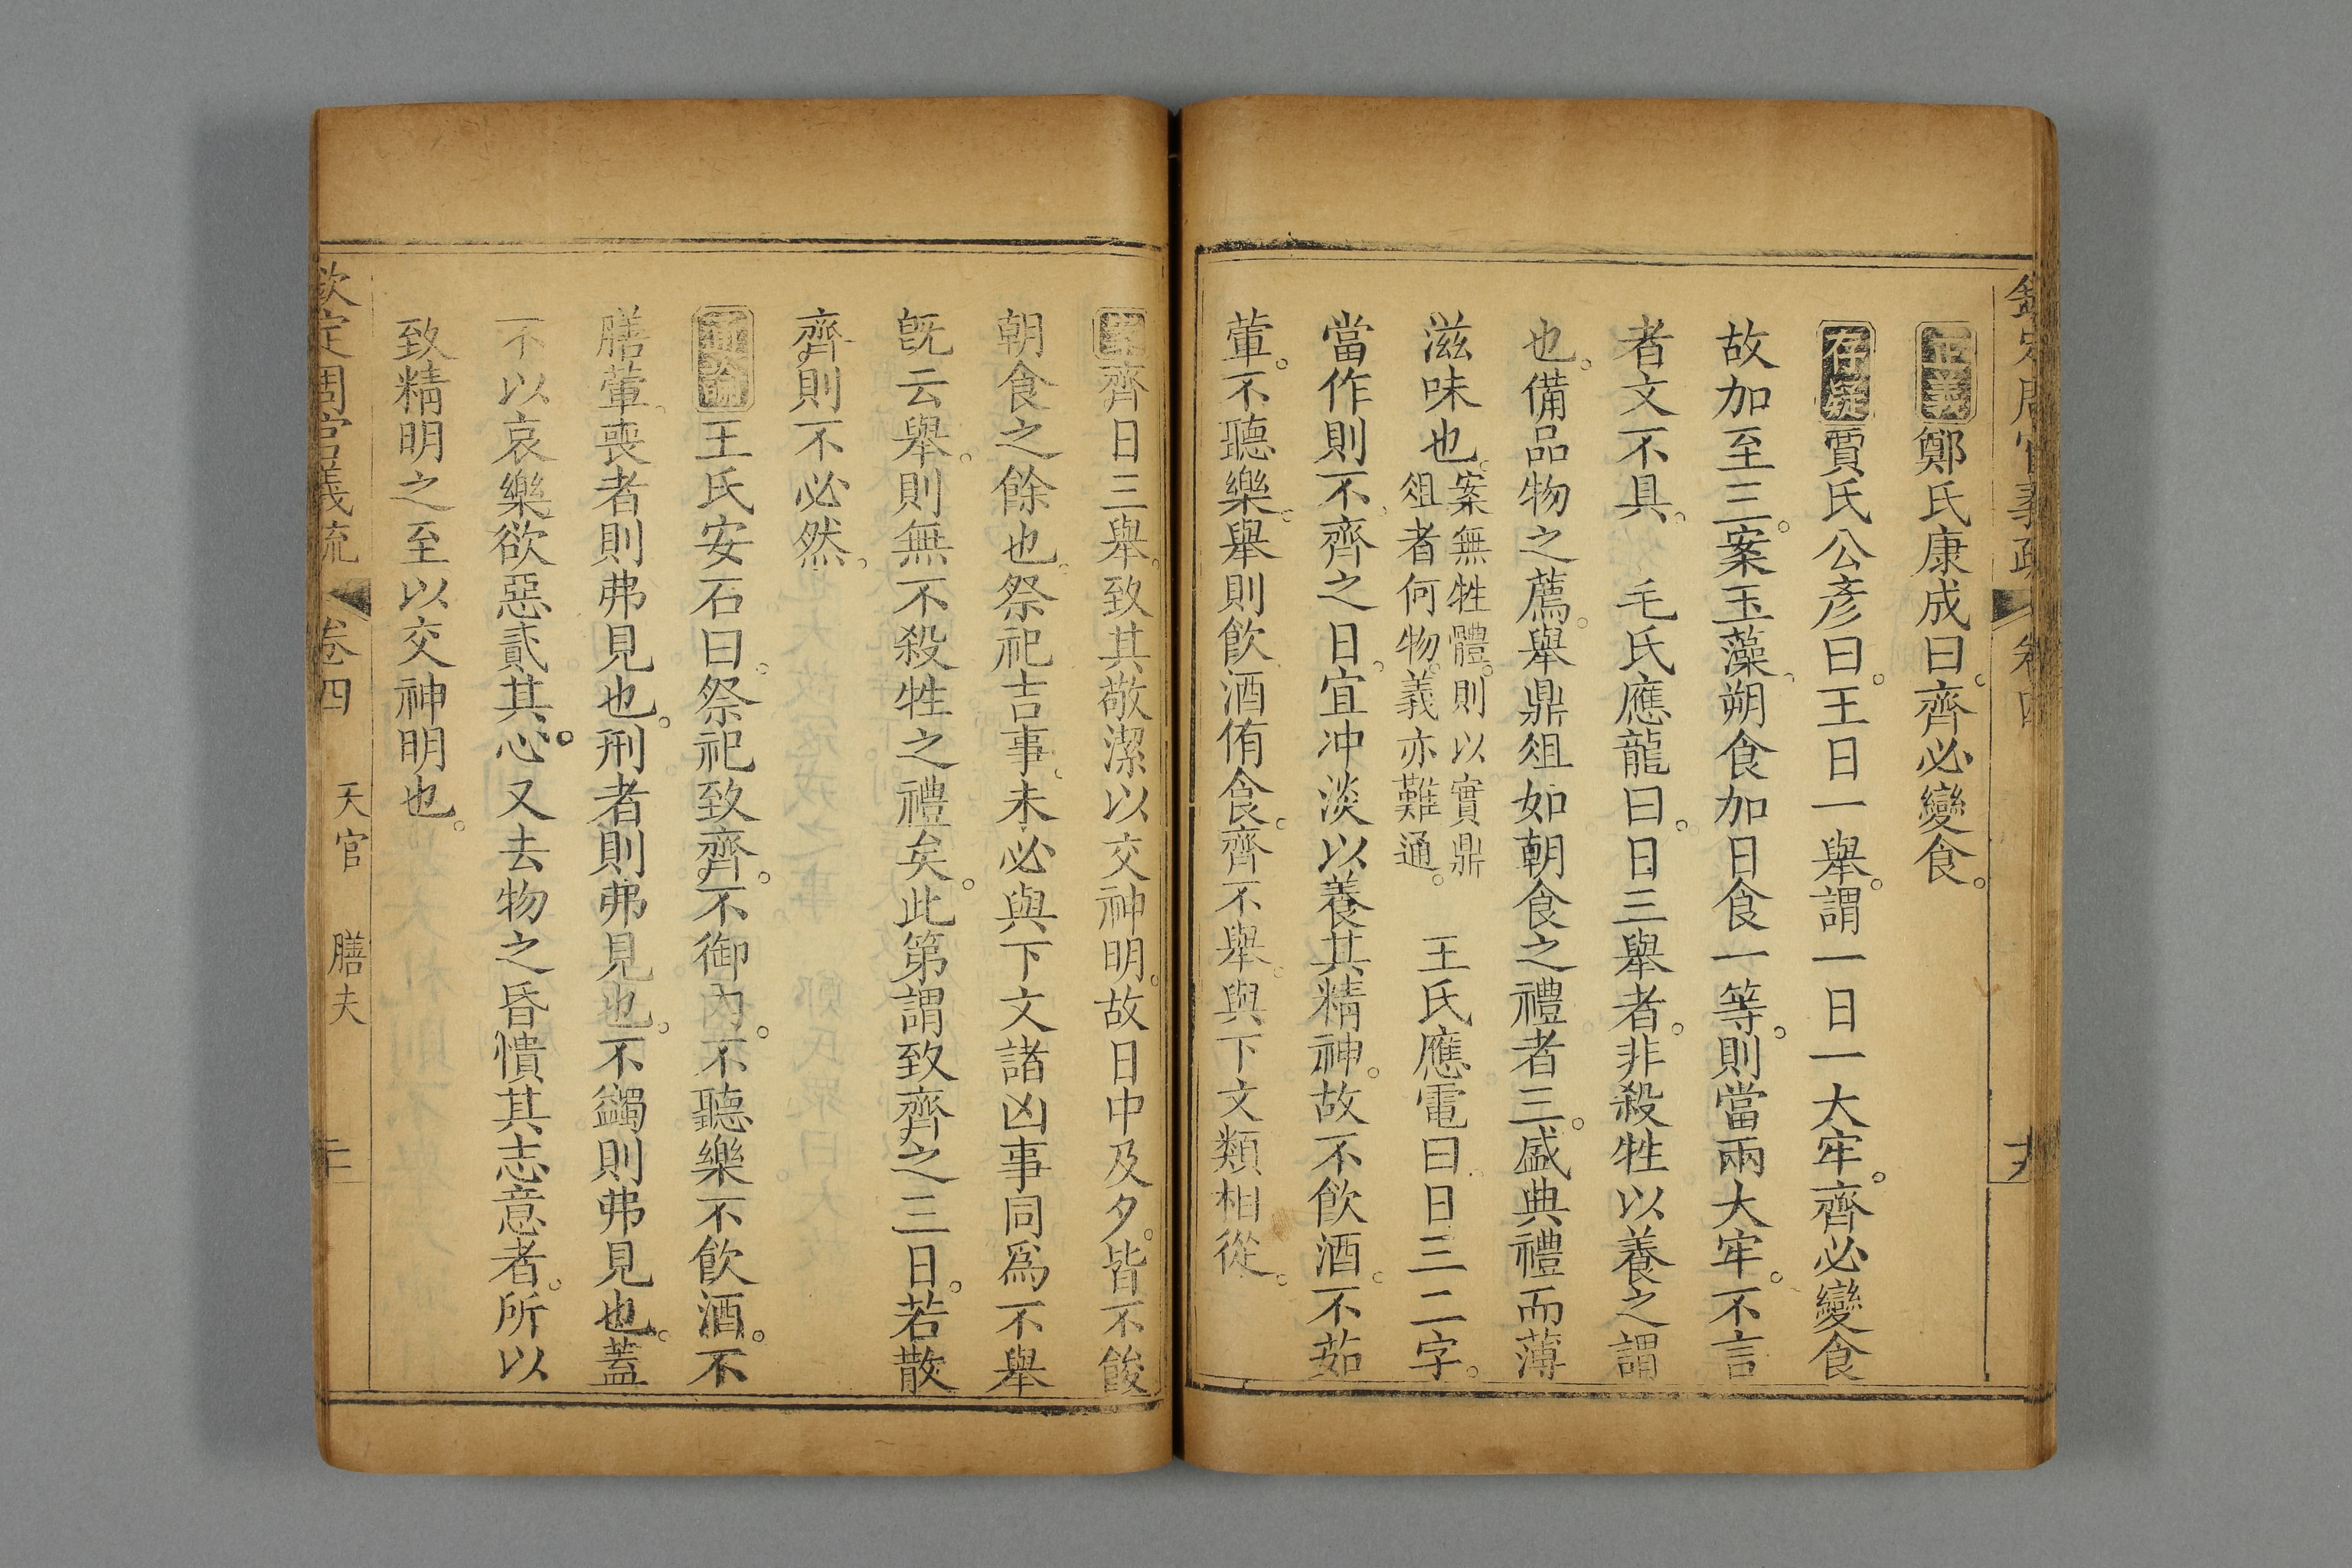 欽定周官義疏 卷四
正義鄭氏康成曰。齊必變食。
存疑賈氏公彥曰。王日一舉。謂一日一大牢。齊必變食
故加至三。案玉藻、朔食加日食一等。則當兩大牢。不言
者文不具。 毛氏應龍曰。日三舉者。非殺牲以養之謂
也。備品物之薦。舉鼎俎如朝食之禮者三。盛典禮而薄
滋味也。案無牲體。則以實鼎
俎者何物。義亦難通。 王氏應電曰。日三二字。
當作則不、齊之日。宜冲淡以養其精神。故不飲酒。不茹
葷。不聽樂。舉則飲酒侑食。齊不舉。與下文類相從。
案齊日三舉。致其敬潔以交神明。故日中及夕。皆不餕
朝食之餘也。祭祀吉事。未必與下文諸凶事同爲不舉
旣云舉。則無不殺牲之禮矣。此第謂致齊之三日。若散
齊則不必然。
通論王氏安石曰。祭祀致齊。不御內。不聽樂不飲酒。不
膳葷。喪者則弗見也。刑者則弗見也。不蠲則弗見也。蓋
不以哀樂欲惡貳其心。又去物之昏憒其志意者。所以
致精明之至以交神明也。
欽定周官義疏 卷四 天官 膳夫